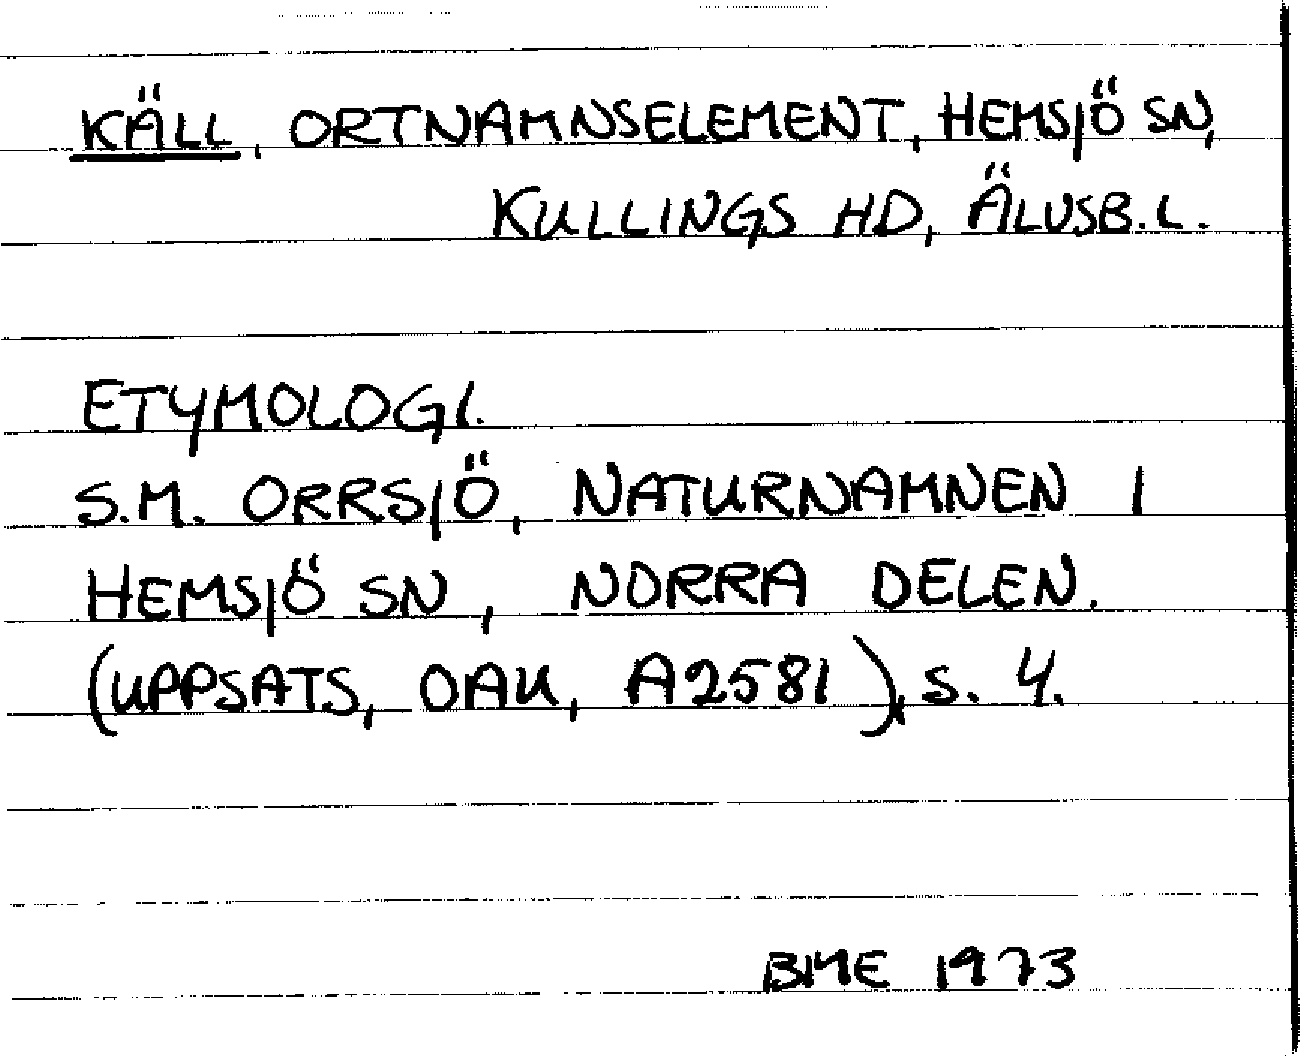 KÄLL, ORTNAMNSELEMENT, HEMSJÖ SN,
KULLINGS HD, ÄLVSB.L.
ETYMOLOGI.
S.M. ORRSJÖ, NATURNAMNEN I
HEMSJÖ SN, NORRA DELEN.
(UPPSATS, OAU, A2581), s. 4.
BME 1973